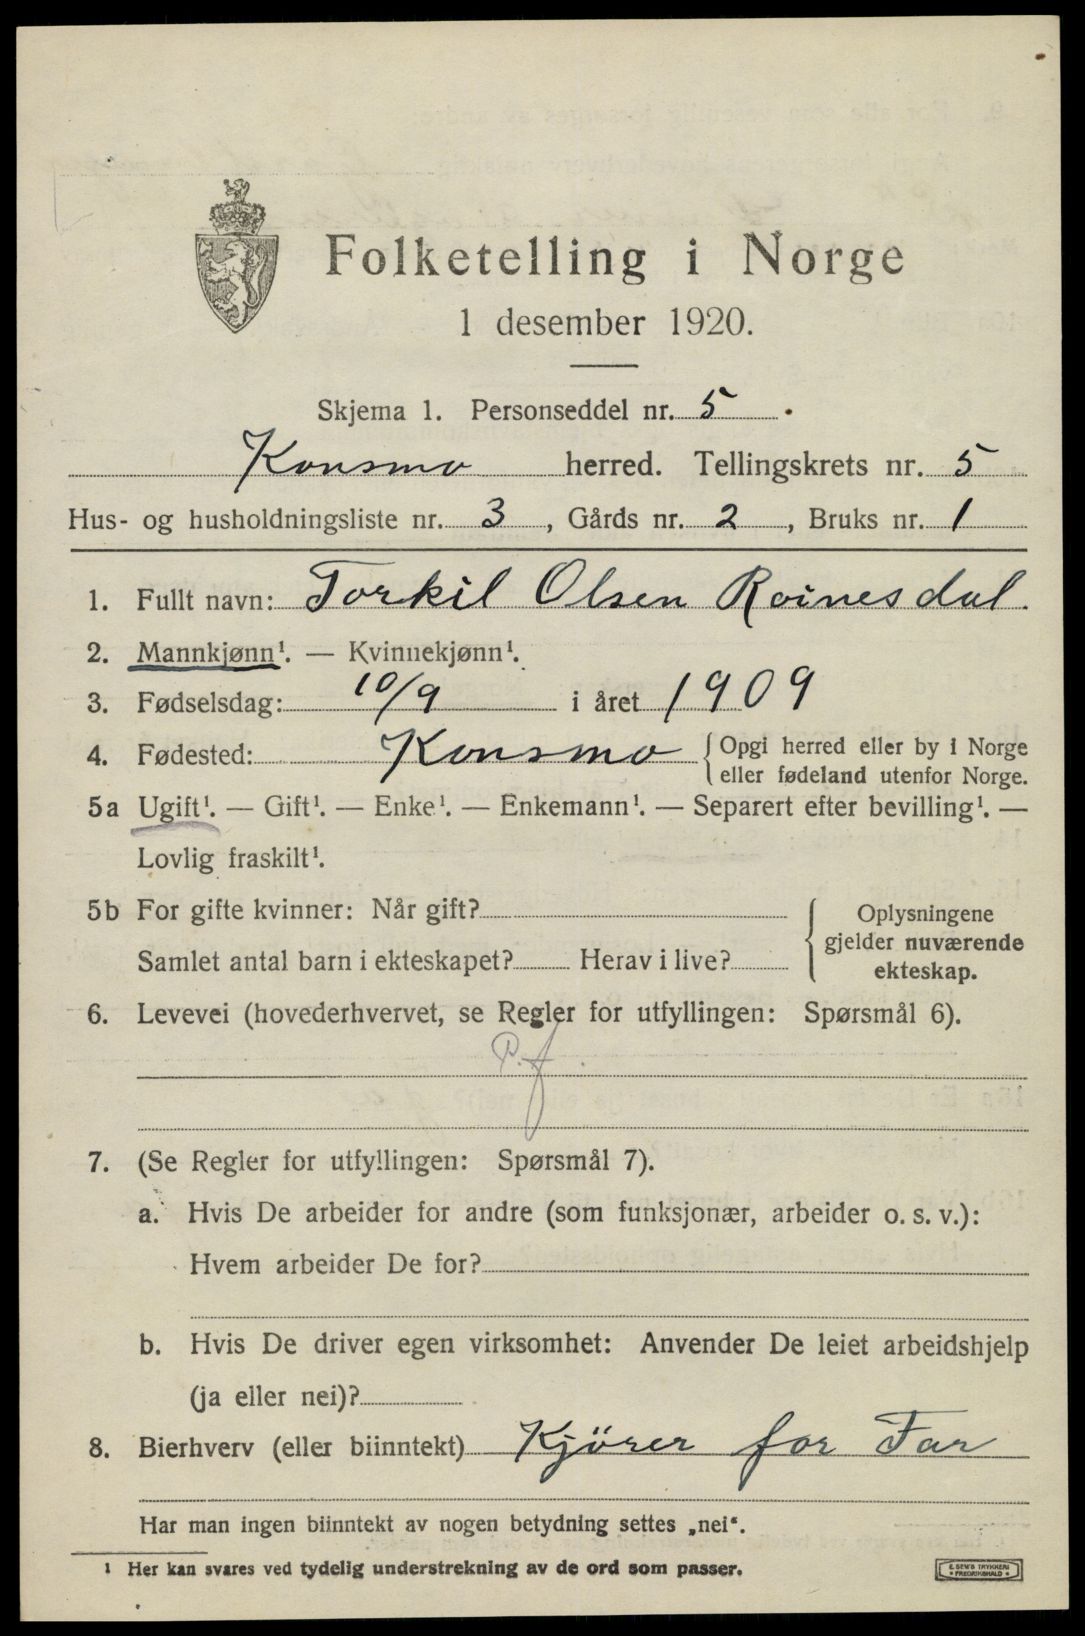 Folketelling i Norge
1 desember 1920.
Skjema 1. Personseddel nr. 5
Konsmo herred. Tellingskrets nr. 5
Hus- og husholdningsliste nr. 3, Gårds nr. 2, Bruks nr. 1
1. Fullt navn: Torkil Olsen Roinesdal.
2. Mannkjønn¹. — Kvinnekjønn¹.
3. Fødselsdag: 10/9 i året 1909
4. Fødested: Konsmo { Opgi herred eller by i Norge
eller fødeland utenfor Norge.
5a Ugift¹. — Gift¹. — Enke¹. — Enkemann¹. — Separert efter bevilling¹. —
Lovlig fraskilt¹.
5b For gifte kvinner: Når gift?
Samlet antal barn i ekteskapet? Herav i live?
{ Oplysningene
gjelder nuværende
ekteskap.
6. Levevei (hovederhvervet, se Regler for utfyllingen: Spørsmål 6).
P. f.
7. (Se Regler for utfyllingen: Spørsmål 7).
a. Hvis De arbeider for andre (som funksjonær, arbeider o. s. v.):
Hvem arbeider De for?
b. Hvis De driver egen virksomhet: Anvender De leiet arbeidshjelp
(ja eller nei)?
8. Bierhverv (eller biinntekt) Kjörer for Far
Har man ingen biinntekt av nogen betydning settes „nei“.
¹ Her kan svares ved tydelig understrekning av de ord som passer.
E. SEM'S TRYKKERI
• FREDRIKSHALD •